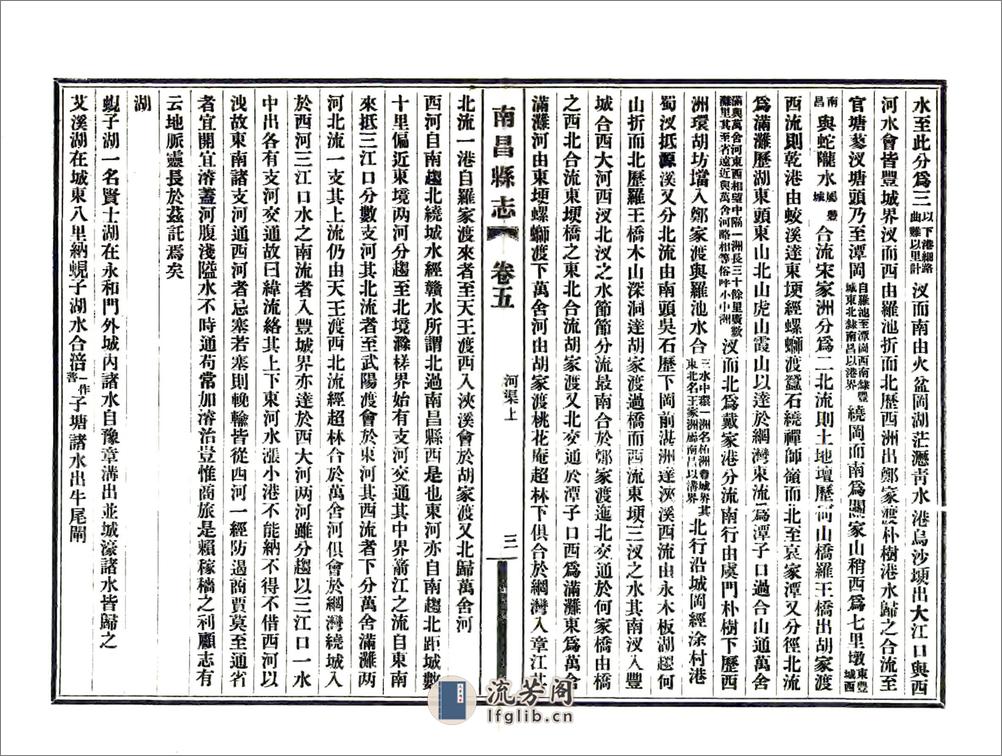 水至此分爲三以下港細路曲難以里計汊而南由火盆岡湖茫瀝靑水港烏沙埂出大江口與西
河水會皆豐城界汊而西由羅池折而北歷西洲出鄭家渡朴樹港水歸之合流至
官塘蓼汊塘頭乃至潭岡自羅池至潭岡西南隸豐城東北隸南昌以港界繞岡而南爲闞家山稍西爲七里墩東豐城西
南昌與蛇隴水屬豐城合流宋家洲分爲二北流則土地壇歷荷山橋羅王橋出胡家渡
西流則乾港由蛟溪達東埂經螺螄渡蠶石繞禪師嶺而北至哀家潭又分徑北流
爲滿灘歷湖東頭東山北山虎山霞山以達於綱灣東流爲潭子口過合山通萬舍
滿與萬舍河東西相望中隔一洲長三十餘里廣數灘里其至省遠近與萬舍河路相等俗呼小中洲汊而北爲戴家港分流南行由虞門朴樹下歷西
洲環胡坊壋入鄭家渡與羅池水合三水中環一洲名柘洲豐城界其東北名王家洲屬南昌以溝界北行沿城岡經涂村港
蜀汊抵源溪又分北流由南頭吳石歷下岡前湛洲達浹溪西流由永木板湖趨何
山折而北歷羅王橋木山深洞達胡家渡過橋而西流東埂三汊之水其南汊入豐
城合西大河西汊北汊之水節節分流最南合於鄭家渡迤北交通於何家橋由橋
之西北合流東埂橋之東北合流胡家渡又北交通於潭子口西爲滿灘東爲萬舍
滿灘河由東埂螺螄渡下萬舍河由胡家渡桃花庵超林下俱合於綱灣入章江其
南昌縣志 卷五 河渠上 三
北流一港自羅家渡來者至天王渡西入浹溪會於胡家渡又北歸萬舍河
西河自南趨北繞城水經贛水所謂北過南昌縣西是也東河亦自南趨北距城數
十里偏近東境兩河分趨至北境滁槎界始有支河交通其中界箭江之流自東南
來抵三江口分數支河其北流者至武陽渡會於東河其西流者下分萬舍滿灘兩
河北流一支其上流仍由天王渡西北流經超林合於萬舍河俱會於綱灣繞城入
於西河三江口水之南流者入豐城界亦達於西大河兩河雖分趨以三江口一水
中出各有支河交通故曰緯流絡其上下東河水漲小港不能納不得不借西河以
洩故東南諸支河通西河者忌塞若塞則輓輸皆從西河一經防遏商賈莫至通省
者宜開宜濬蓋河腹淺隘水不時通苟常加濬治豈惟商旅是賴稼穡之利顧志有
云地脈靈長於茲託焉矣
湖
蜆子湖一名賢士湖在永和門外城內諸水自豫章溝出並城濠諸水皆歸之
艾溪湖在城東八里納蜆子湖水合涪一作菩子塘諸水出牛尾閘
流芳阁
lfglib.cn